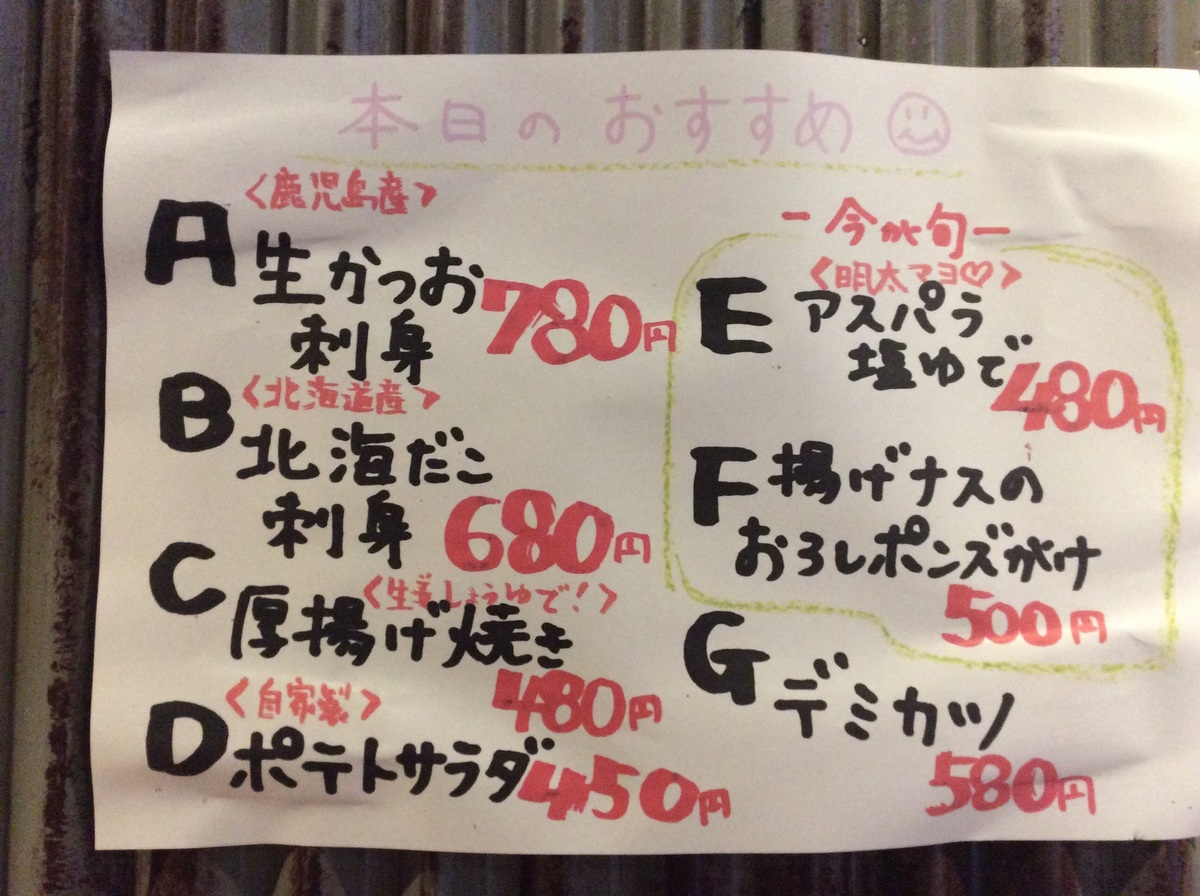 本日のおすすめ
A <鹿児島産>
生かつお
刺身 780円
B <北海道産>
北海だこ
刺身 680円
C <生姜しょうゆで!>
厚揚げ焼き
480円
D <自家製>
ポテトサラダ 450円
-今が旬-
E <明太マヨ♡>
アスパラ
塩ゆで 480円
F 揚げナスの
おろしポンズがけ
500円
G デミカツ
580円